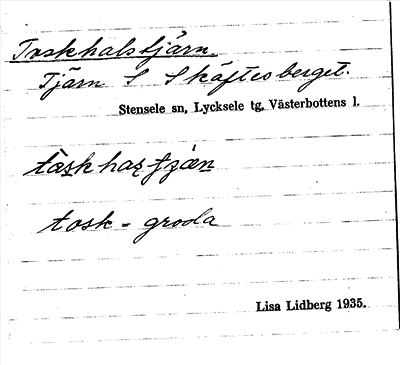 Toskhalstjärn.
Tjärn S Skäftesberget.
Stensele sn, Lycksele tg, Västerbottens l.
tosk - groda
Lisa Lidberg 1935.